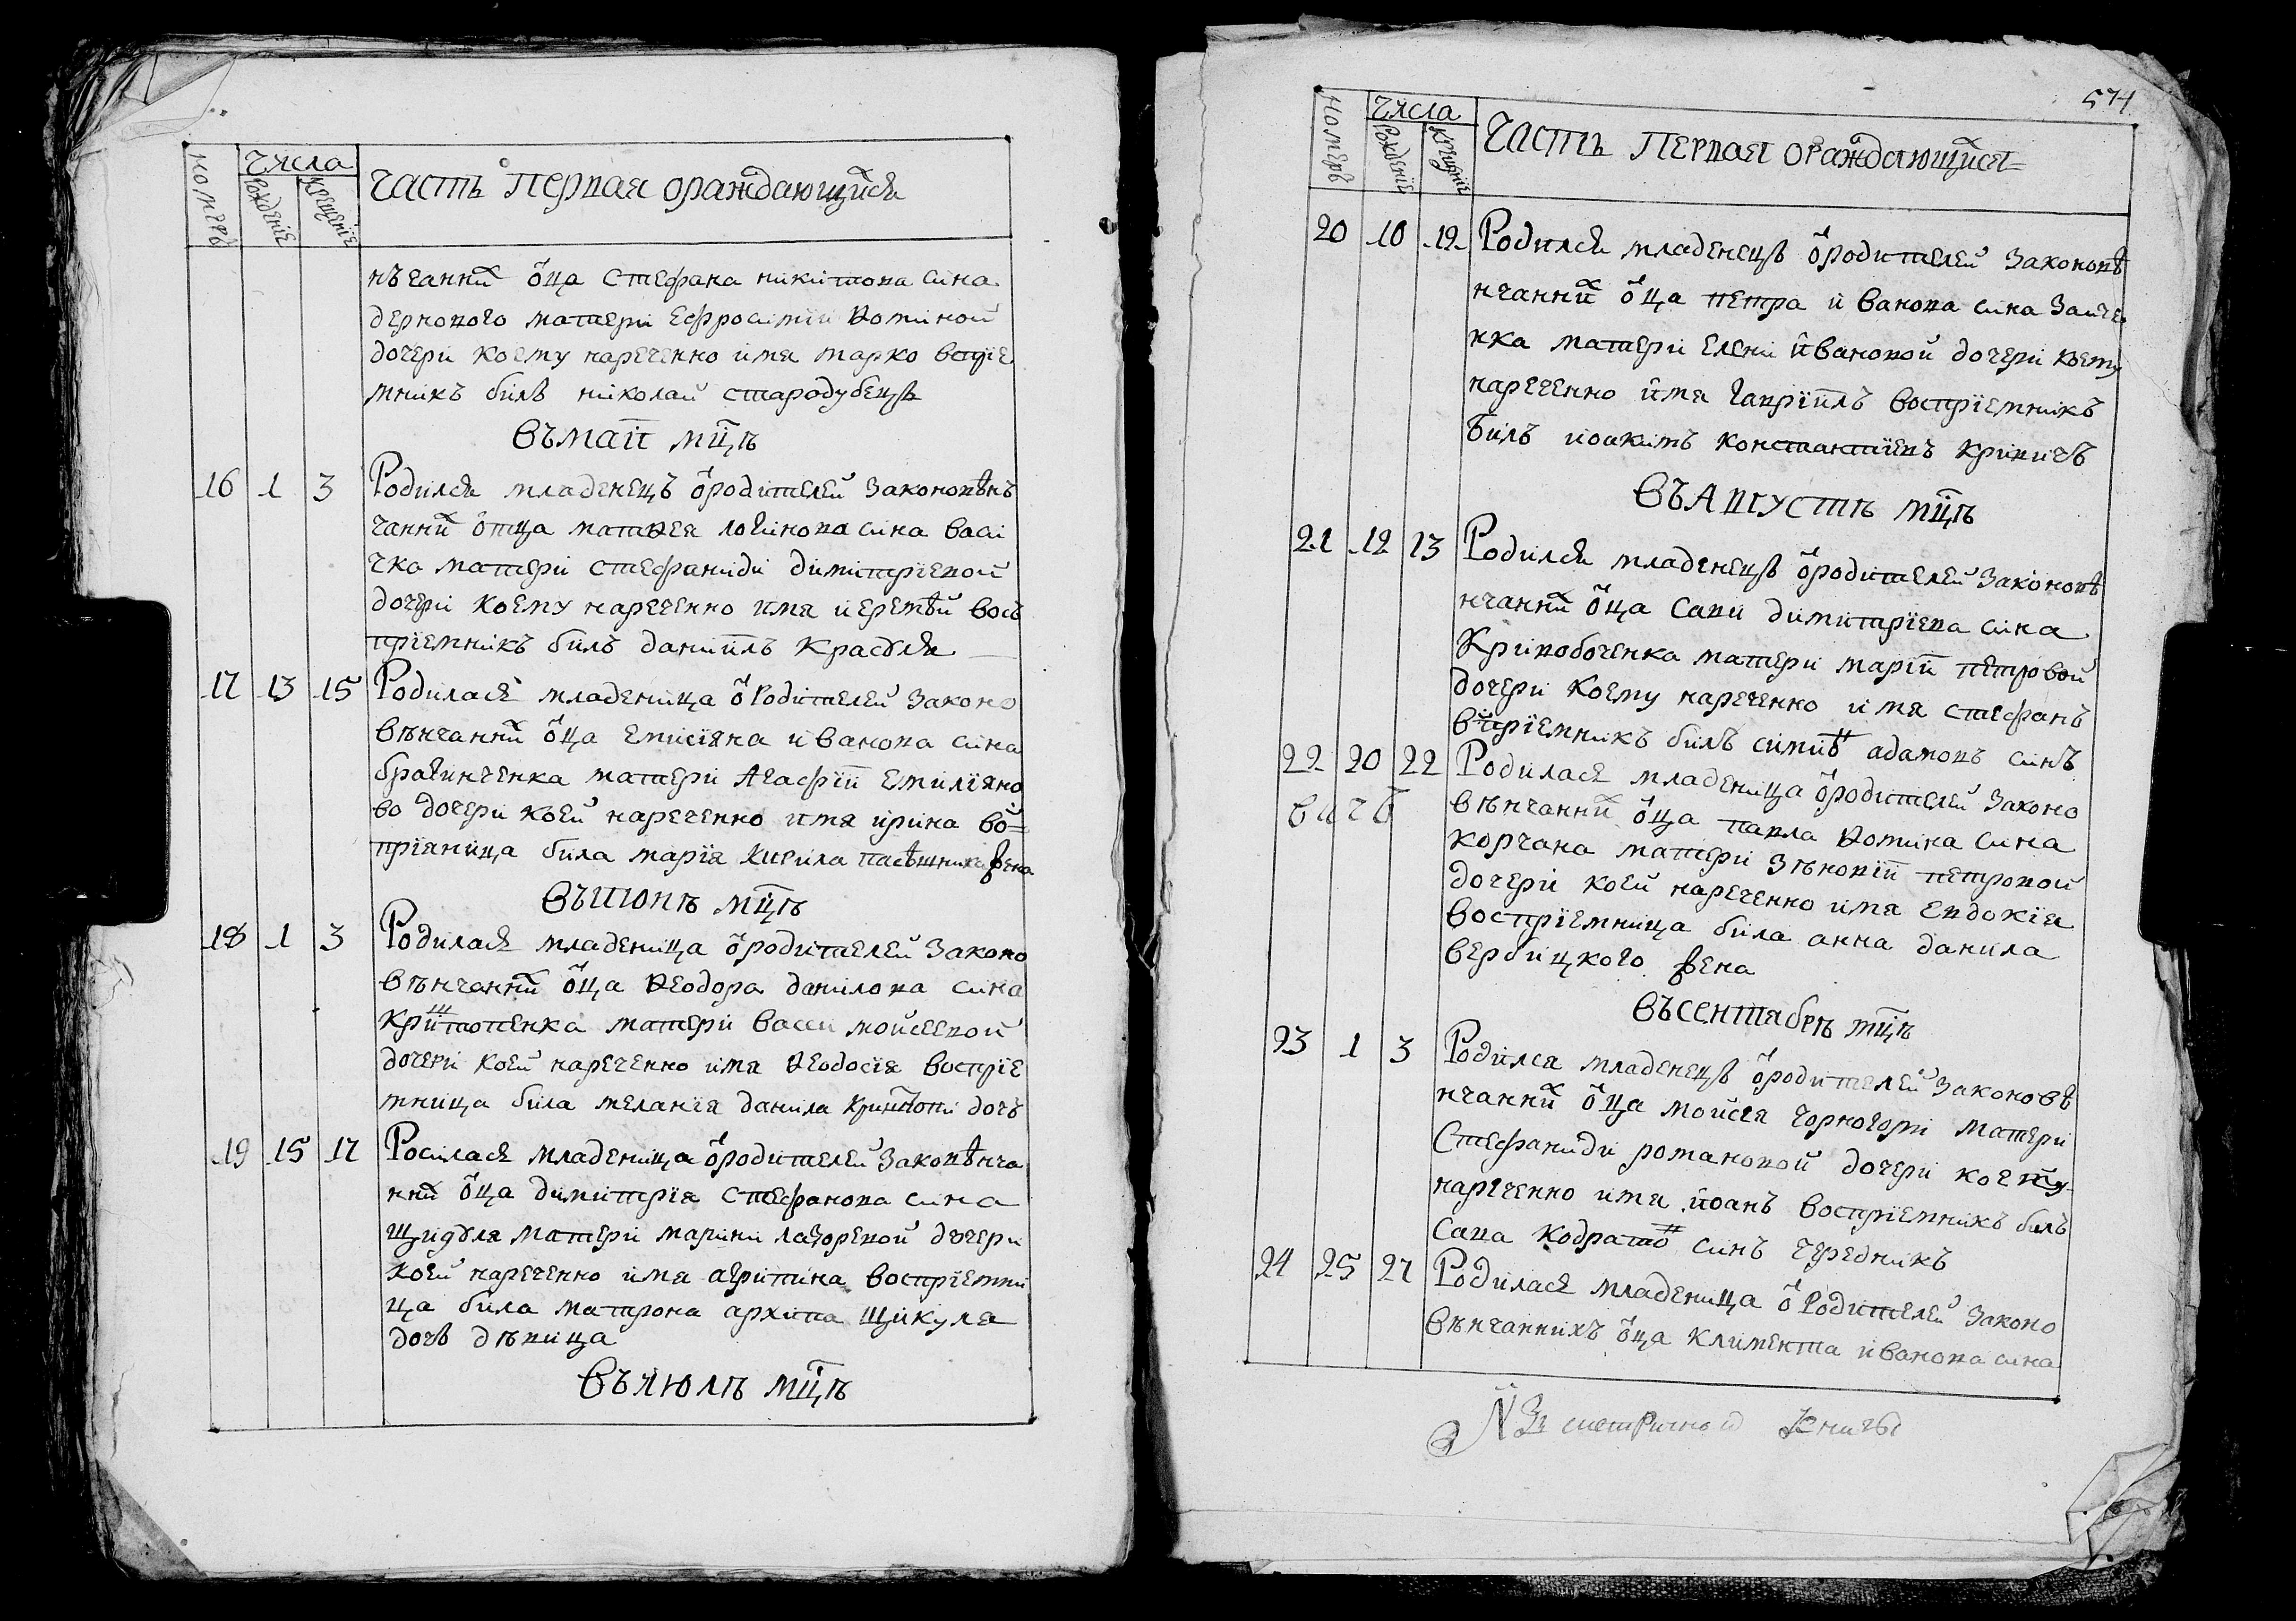 номеръ
числа
рожденiе
крещенiе
Часть первая ораждающихся
нъчанних оца стефана никитова сина
дернового матери Ефросинiи Ѳоминой
дочери коему нареченно имя марко воспрiе
мникъ билъ николай стародубецъ
Въ маiи мцѣ
16 1 3 Родился младенецъ ѿ родителей законовѣнъ
чанних отца матѳея логинова сина васи
чка матери стефаниди димитрiевой
дочери коему нареченно имя иеремѣй вось
прiемникъ билъ данiилъ Красуля
17 13 15 Родилася младеница ѿ Родителей законо
вѣнчанних оца Емилiяна иванова сина
брагинченка матери Агафiи Емилiяно
во дочери коей нареченно имя ирина во=
прiяница била марiя кирила пасѣшника жена
Въ июнѣ мцѣ
18 1 3 Родилася младеница ѿ родителей законо
вѣнчанних оца Ѳеодора данилова сина
матери васси мойсеевой
дочери коей нареченно имя Ѳеодосiя воспрiе
мница била меланiя данила дочъ
19 15 17 Росилася младеница ѿ родителей законвѣнча
нних оца димитрiя стефанова сина
Щидуля матери марини лазоревой дочери
коей нареченно имя агрипина воспрiемни
ца била матрона архипа щикуля
дочъ дѣвица
Въ июлѣ мцѣ
574
номеръ
числа
рожденiе
крещенiе
Часть первая ораждающихся
20 10 12 Родился младенецъ ѿ родителей законовѣ
нчанних оца петра иванова сина Заиче
нка матери елени ивановой дочери коему
нареченно имя гаврiилъ воспрiемникъ
билъ иоакимъ константиевъ кривичъ
Въ августѣ мцѣ
21 12 13 Родился младенецъ ѿ родителей законовѣ
нчанних оца Сави димитрiева сина
Кривобоченка матери марiи петровой
дочери коему нареченно имя стефанъ
воспрiемникъ билъ адамовъ синъ
22 20 22 Родилася младеница ѿ родителей законо
вѣнчанних оца павла Ѳомина сина
корчана матери зѣновiи петровой
дочери коей нареченно имя Евдокiя
воспрiемница била анна данила
вербицкого жена
Въ сентябрѣ мцѣ
23 1 3 Родился младенецъ ѿ родителей законовѣ
нчанних оца мойсея чорногори матери
Стефаниди романовой дочери коему
нареченно имя иоанъ воспрiемникъ билъ
Сава Кодратов синъ чередникъ
24 25 27 Родилася младеница ѿ Родителей законо
вѣнчаннихъ оца климента иванова сина
метричной книги